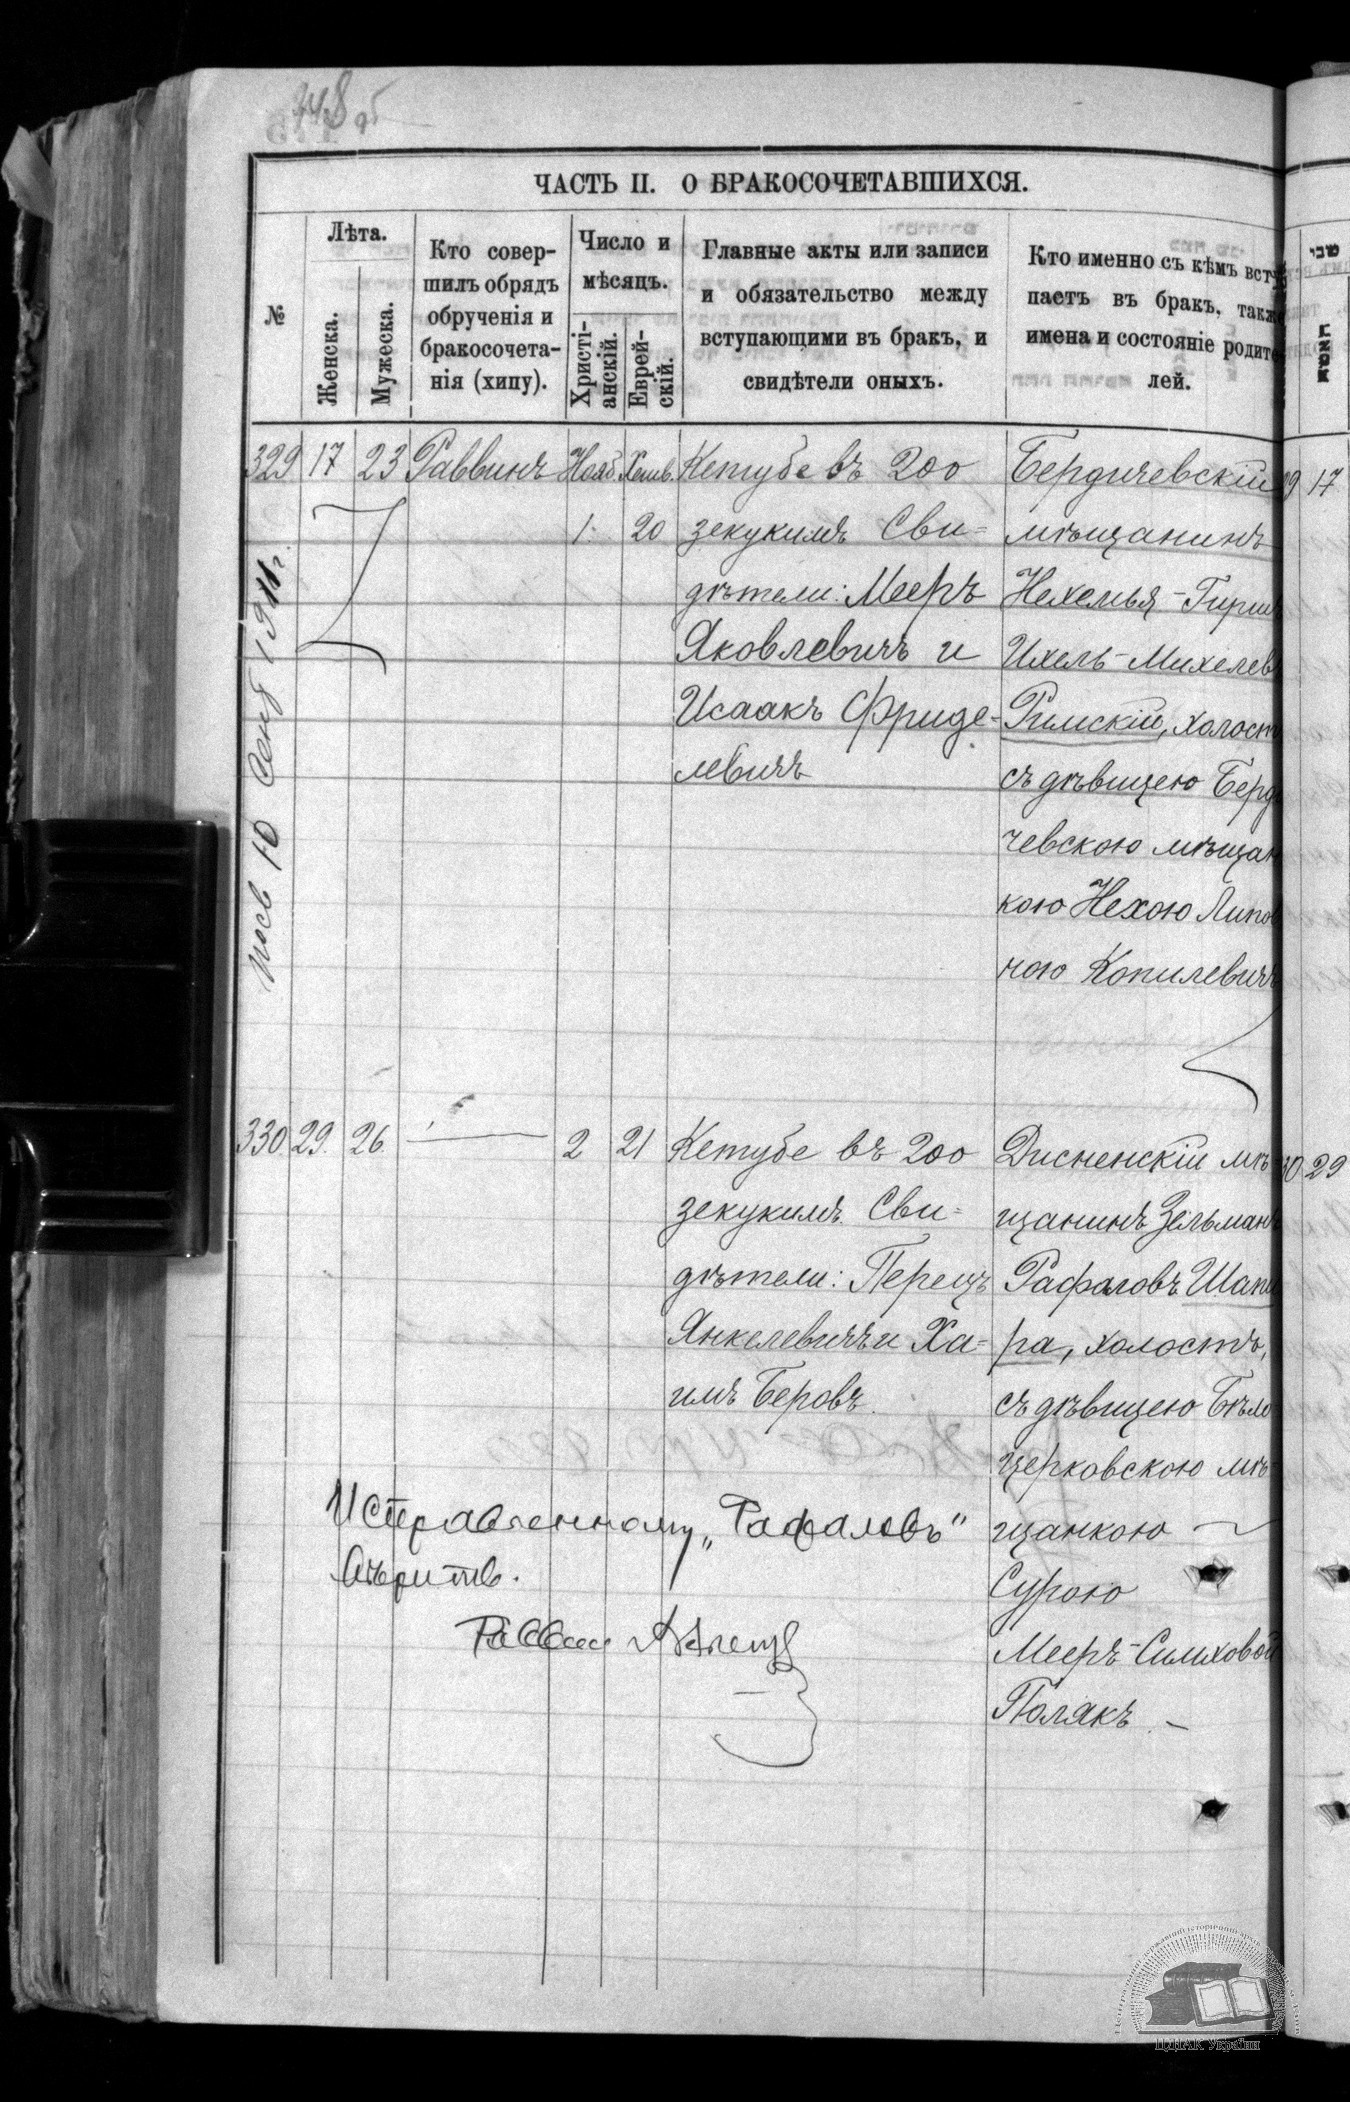 348 об
ЧАСТЬ II. О БРАКОСОЧЕТАВШИХСЯ.
№
Лѣта.
Женска.
Мужеска.
Кто совер-
шилъ обрядъ
обрученія и
бракосочета-
нія (хипу).
Число и
мѣсяцъ.
Христі-
анскій.
Еврей-
скій.
Главные акты или записи
и обязательство между
вступающими въ бракъ, и
свидѣтели оныхъ.
Кто именно съ кѣмъ всту-
паетъ въ бракъ, также
имена и состояніе родите-
лей.
329 17 23 Раввинъ Нояб. Хешв.
1. 20
Кетубе въ 200
зекукимъ Сви-
дѣтели: Мееръ
Яковлевичъ и
Исаакъ Фриде-
левичъ
Бердичевскій
мѣщанинъ
Нехемья-Гирш
Ихель-Михелев
Римскій, холост
съ дѣвицею Берд
чевскою мѣщан
кою Нехою Липов
ною Копилевичъ
10 Сент 1911 г.
330. 29. 26 — 2 21
Кетубе въ 200
зекукимъ Сви-
дѣтели: Перецъ
Янкелевичъ и Ха-
имъ Беровъ.
Дисненскій мѣ-
щанинъ Зельманъ
Рафаловъ Шапи
ра, холостъ,
съ дѣвицею Бѣло
церковскою мѣ-
щанкою
Сурою
Мееръ-Симховой
Полякъ. —
Исправленному „Рафаловъ“
вѣрить.
Раввин
29 17
30 29
ЦДІАК України